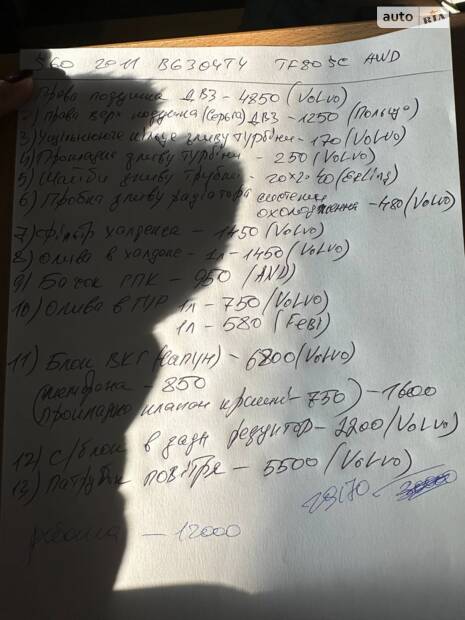 auto RIA
S60 2011 B6304T4 TF80SC AWD
Права подушка ДВЗ - 4850 (Volvo)
2) Права верх подушка (серьга) ДВЗ - 1250 (Польща)
3) Ущільнююче кільце зливу турбіни - 170 (Volvo)
4) Прокладка зливу турбіни - 250 (Volvo)
5) Шайби зливу турбіни - 20x2=40 (Elring)
6) Пробка зливу радіатора системи
охолодження - 480 (Volvo)
7) Фільтр халдекса - 1450 (Volvo)
8) Олива в халдекс - 1л - 1450 (Volvo)
9) Бачок ГПК - 950 (AND)
10) Олива в ГУР 1л - 750 (Volvo)
1л - 580 (Febi)
11) Блок ВКГ (Сапун) - 6800 (Volvo)
(мембрана - 850
прокладка клапан кришки - 750) - 1600
12) С/блок в задн редуктор - 2200 (Volvo)
13) Патрубок повітря - 5500 (Volvo)
робота - 12000